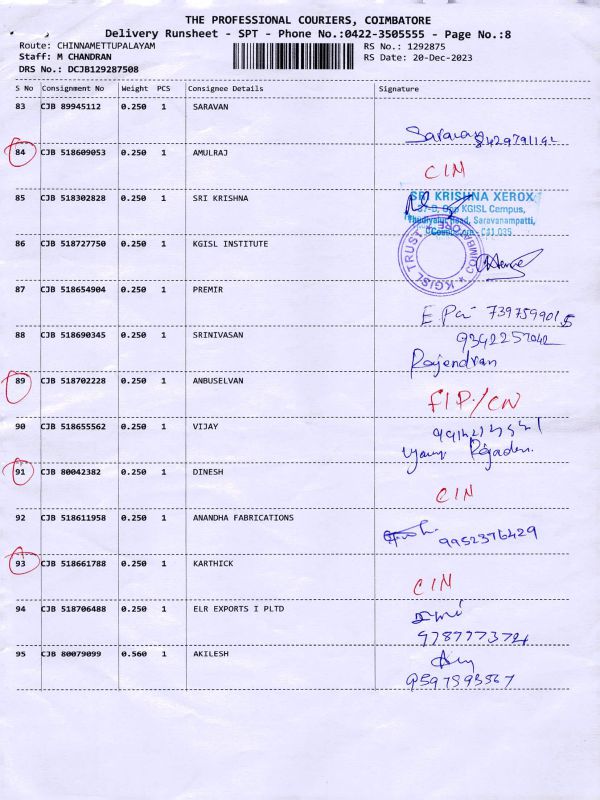 THE PROFESSIONAL COURIERS, COIMBATORE
Delivery Runsheet - SPT - Phone No.:0422-3505555 - Page No.:8
Route: CHINNAMETTUPALAYAM RS No.: 1292875
Staff: M CHANDRAN RS Date: 20-Dec-2023
DRS No.: DCJB129287508
S No Consignment No Weight PCS Consignee Details Signature
83 CJB 89945112 0.250 1 SARAVAN
Saravan
84 CJB 518609053 0.250 1 AMULRAJ
CIN
85 CJB 518302828 0.250 1 SRI KRISHNA
SRI KRISHNA XEROX
KGISL Campus,
Road, Saravanampatti,
86 CJB 518727750 0.250 1 KGISL INSTITUTE
KGISL TRUST COIMBATORE
87 CJB 518654904 0.250 1 PREMIR
88 CJB 518690345 0.250 1 SRINIVASAN
Rajendran
89 CJB 518702228 0.250 1 ANBUSELVAN
FIP/CN
90 CJB 518655562 0.250 1 VIJAY
91 CJB 80042382 0.250 1 DINESH
CIN
92 CJB 518611958 0.250 1 ANANDHA FABRICATIONS
9952376429
93 CJB 518661788 0.250 1 KARTHICK
CIN
94 CJB 518706488 0.250 1 ELR EXPORTS I PLTD
95 CJB 80079099 0.560 1 AKILESH